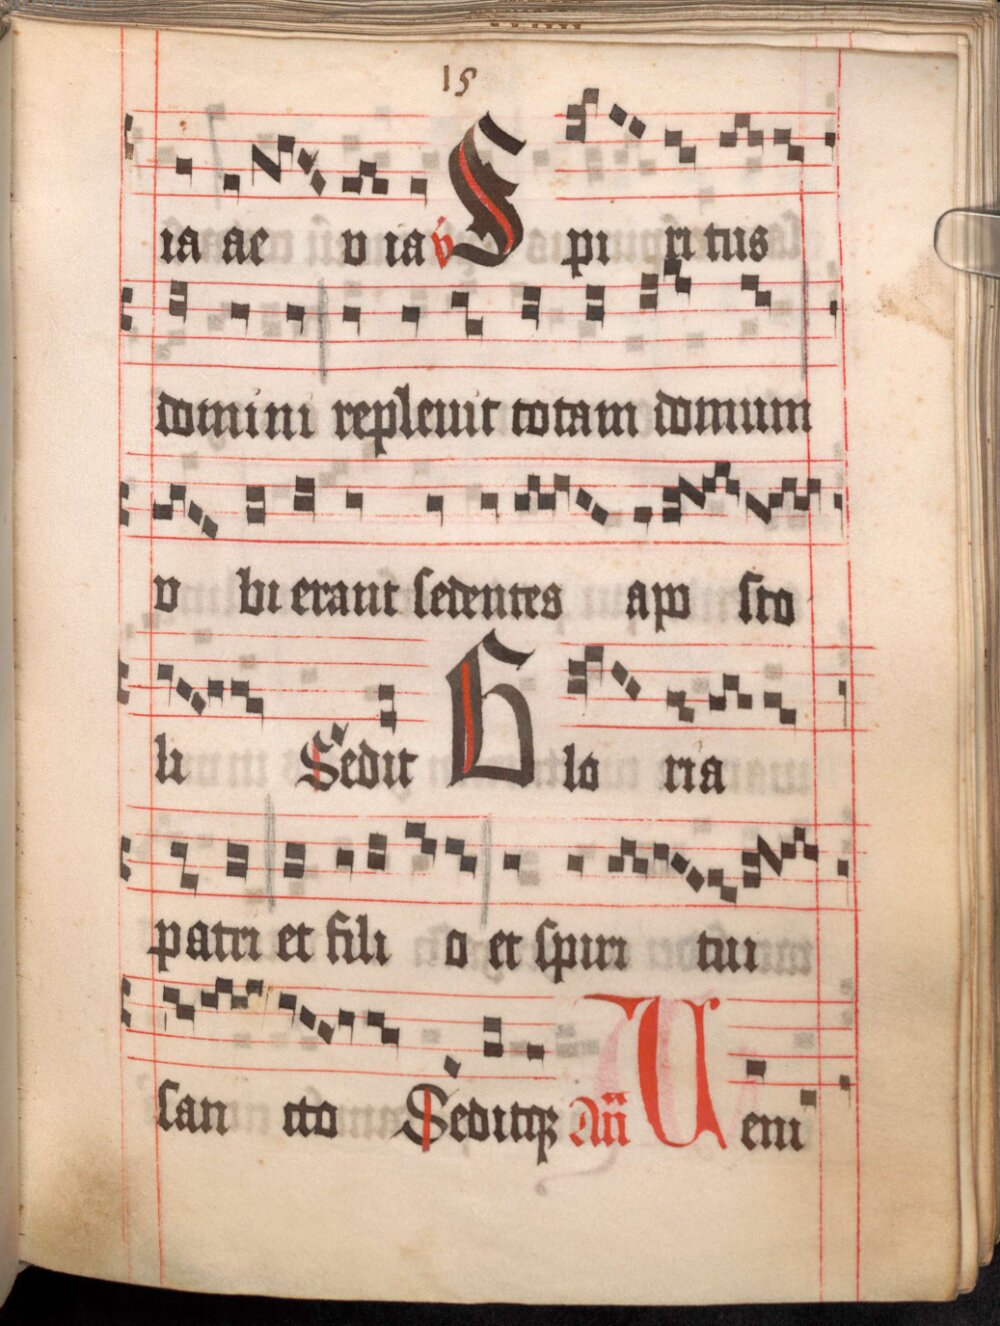 15
ia ae v ia ℣ Spi ri tus
domini repleuit totam domum
v bi erant sedentes apo sto
li Sedit Glo ria
patri et fili o et spiri tui
san cto Seditqz Añ Veni